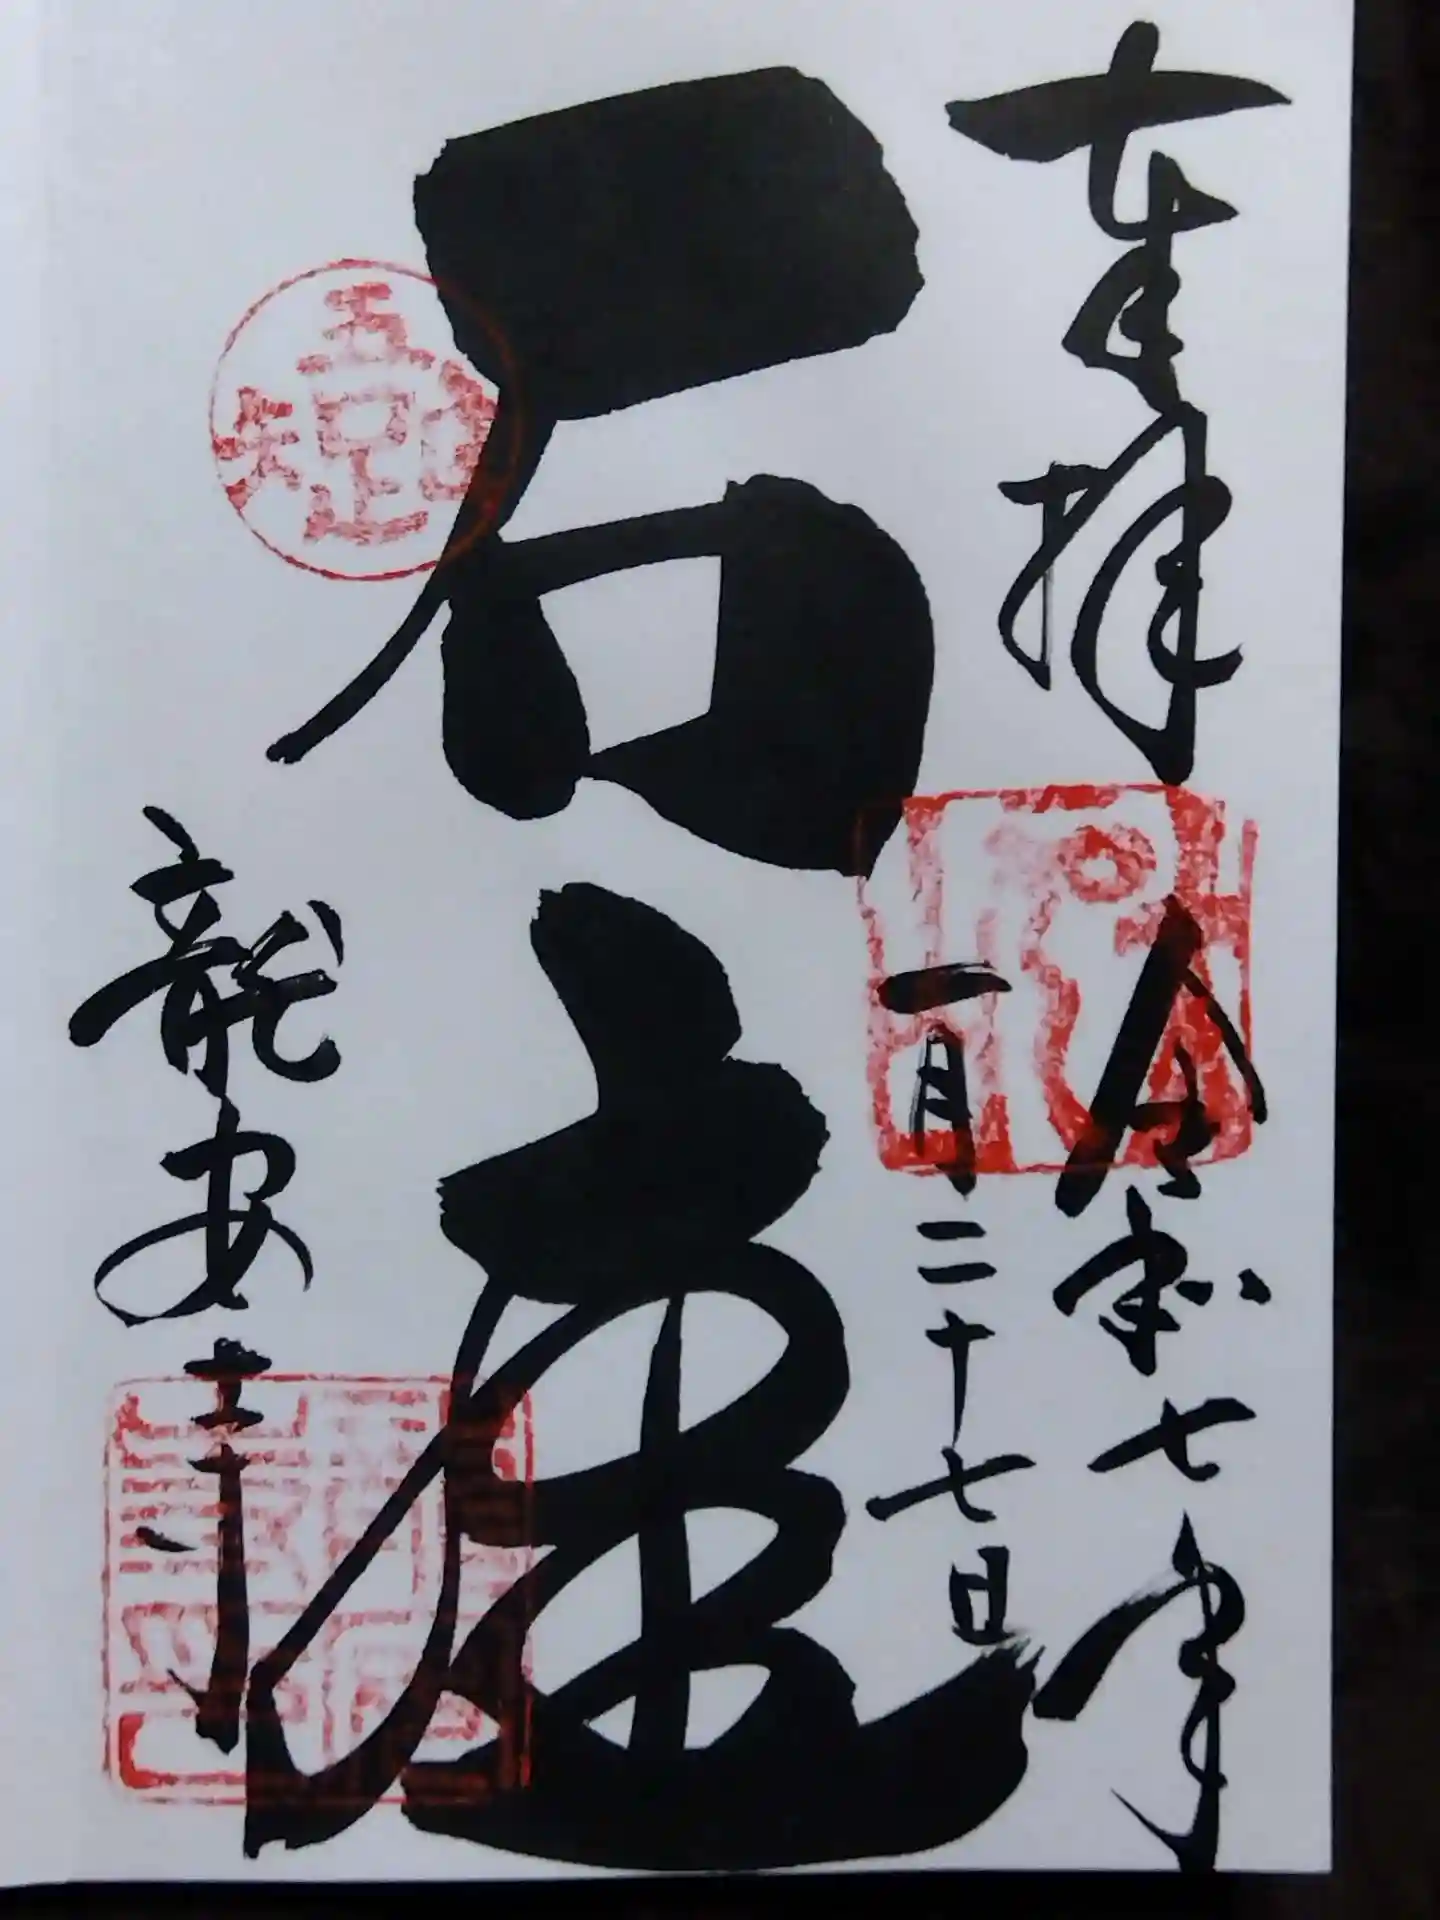 奉拝
令和七年
一月二十七日
石庭
龍安寺
吾唯足知